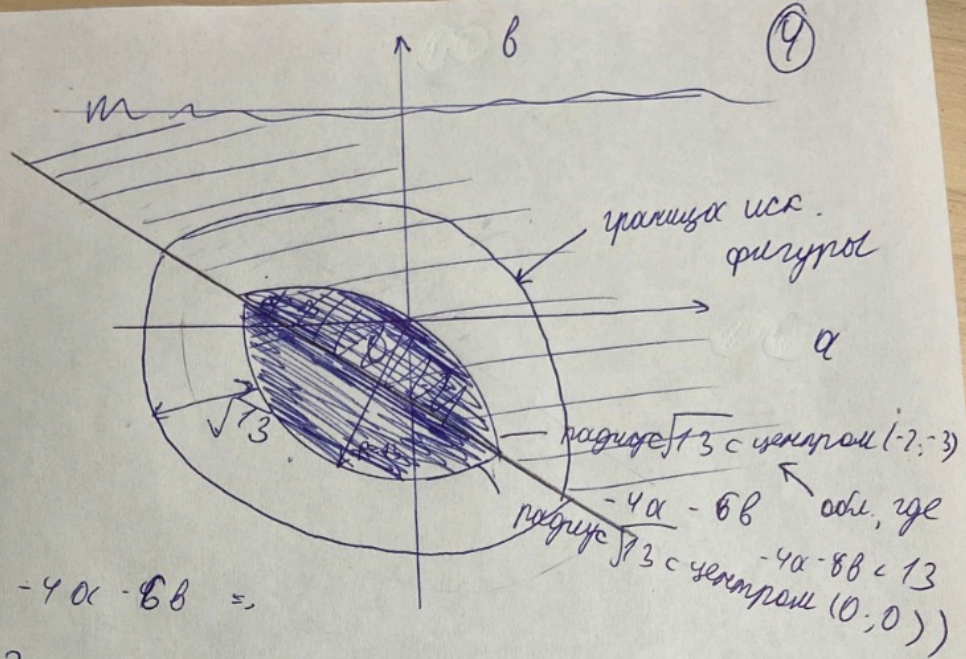 в
④
граница иск.
фигуры
0
а
√13
радиус √13 с центром (-2; -3)
-4a - 6в
обл., где
-4a-6в < 13
радиус √13 с центром (0; 0))
-4a - 6в =,